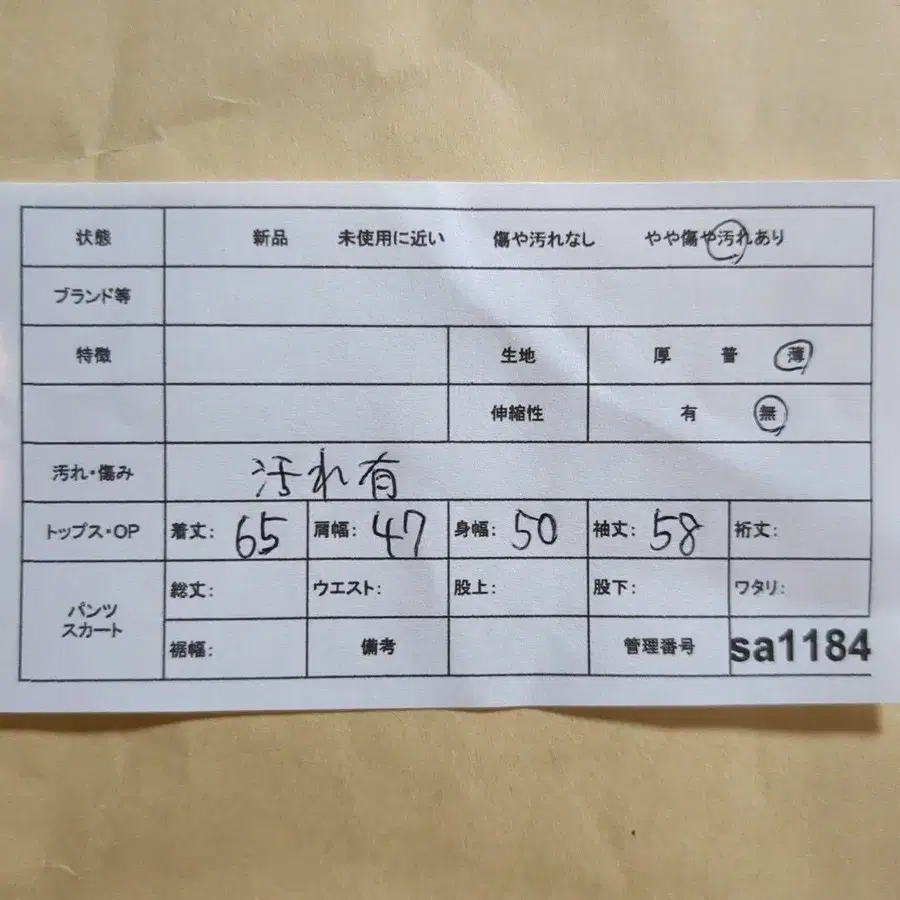 状態 新品 未使用に近い 傷や汚れなし やや傷や汚れあり
ブランド等
特徴 生地 厚 普 薄
伸縮性 有 無
汚れ・傷み 汚れ有
トップス・OP 着丈: 65 肩幅: 47 身幅: 50 袖丈: 58 裄丈:
パンツ
スカート
総丈: ウエスト: 股上: 股下: ワタリ:
裾幅: 備考 管理番号 sa1184